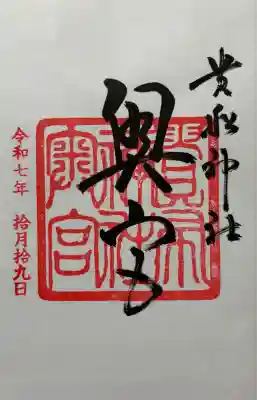 貴船神社
奥宮
貴船神社奥宮
令和七年 拾月拾九日